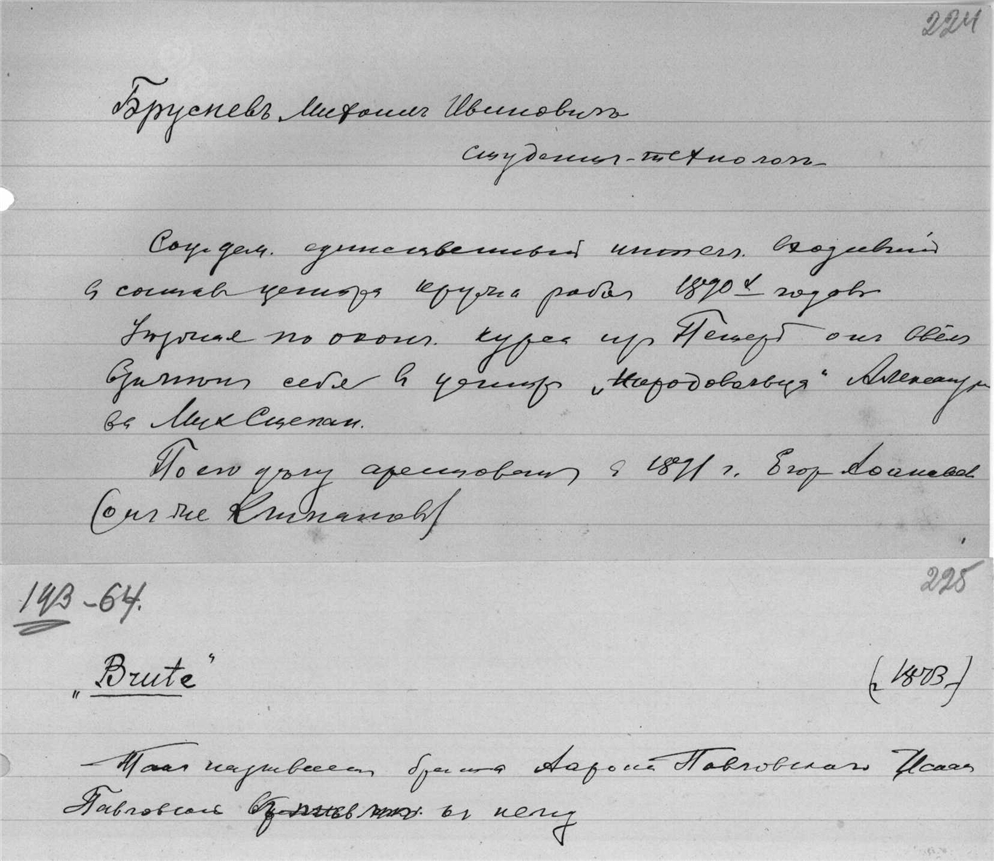 224
Брусневъ Михаилъ Ивановичъ
студентъ-технологъ
Соц. дем. единственный интел. входивший
в состав центра кружка рабоч 1890х годовъ
по оконч. курса из Петерб он ввел
взамен себя в центр „Народовольца" Александро
ва Мих Степан.
По его делу арестован в 1891 г. Егор Афанасьев
(он же Климанов)
225
193-64.
„Brute" (1873)
Так называет брата Аарона Павловского Исаак
Павловский к нему